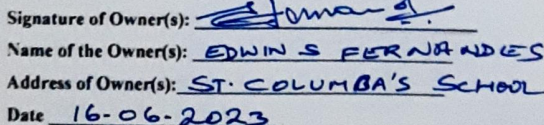 Signature of Owner(s):
Name of the Owner(s): EDWIN S FERNANDES
Address of Owner(s): ST. COLUMBA'S SCHOOL
Date 16-06-2023